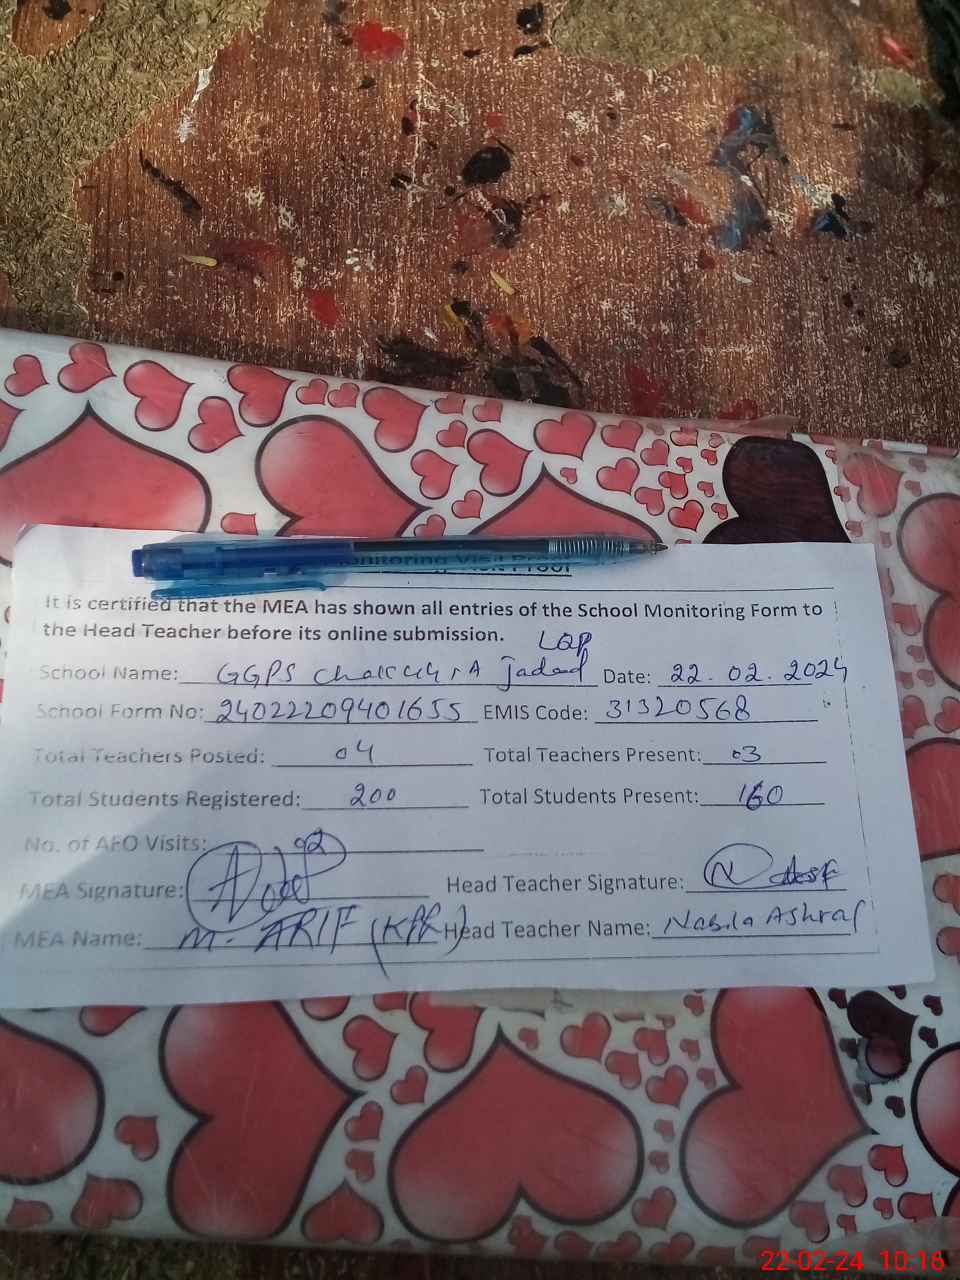 Monitoring Visit Proof
It is certified that the MEA has shown all entries of the School Monitoring Form to
the Head Teacher before its online submission.
LQP
School Name: GGPS Jadeed Date: 22.02.2024
School Form No: 24022209401655 EMIS Code: 31320568
Total Teachers Posted: 04 Total Teachers Present: 03
Total Students Registered: 200 Total Students Present: 160
No. of AEO Visits: 02
MEA Signature: Head Teacher Signature:
MEA Name: M. ARIF (KPR) Head Teacher Name: Nabila Ashraf
22-02-24 10:16